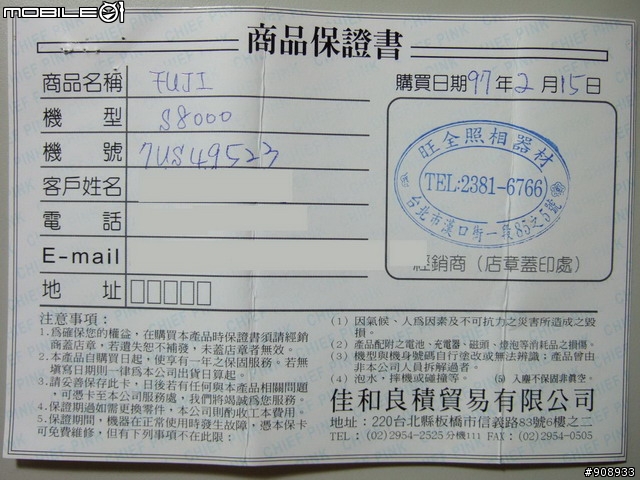 mobile01
商品保證書
商品名稱 FUJI
購買日期97年2月15日
機型 S8000
機號 7US49523
客戶姓名
電話
E-mail
地址
旺全照相器材
TEL:2381-6766
台北市漢口街一段85之5號
經銷商（店章蓋印處）
注意事項：
1.爲確保您的權益，在購買本產品時保證書須請經銷
商蓋店章，若遺失恕不補發，未蓋店章者無效。
2.本產品自購買日起，使享有一年之保固服務。若無
填寫日期則一律爲本公司出貨日算起。
3.請妥善保存此卡，日後若有任何與本產品相關問題
，可憑卡至本公司服務處，我們將竭誠爲您服務。
4.保證期過如需更換零件，本公司則酌收工本費用。
5.保證期間，機器在正常使用時發生故障，憑本保卡
可免費維修，但有下列事項不在此限：
(1) 因氣候、人爲因素及不可抗力之災害所造成之毀
損。
(2) 產品配附之電池、充電器、磁頭、燈泡等消耗品之損傷。
(3) 機型與機身號碼自行塗改或無法辨識；產品曾由
非本公司人員拆解過者。
(4) 泡水、摔機或碰撞等。 (5) 入塵不保固非真空。
佳和良積貿易有限公司
地址：220台北縣板橋市信義路83號6樓之二
TEL：(02)2954-2525 分機111 FAX：(02)2954-0505
#908933